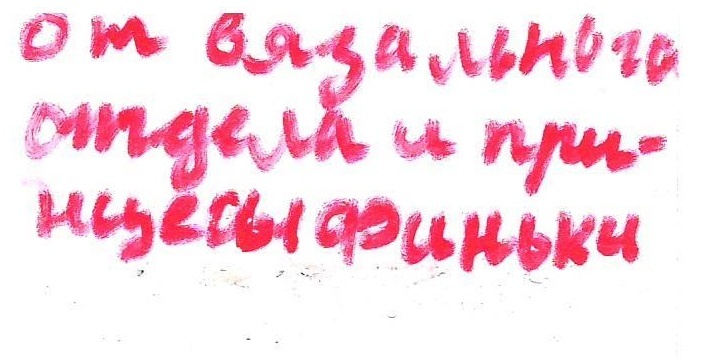 От вязального
отдела и при-
нцесы Финьки